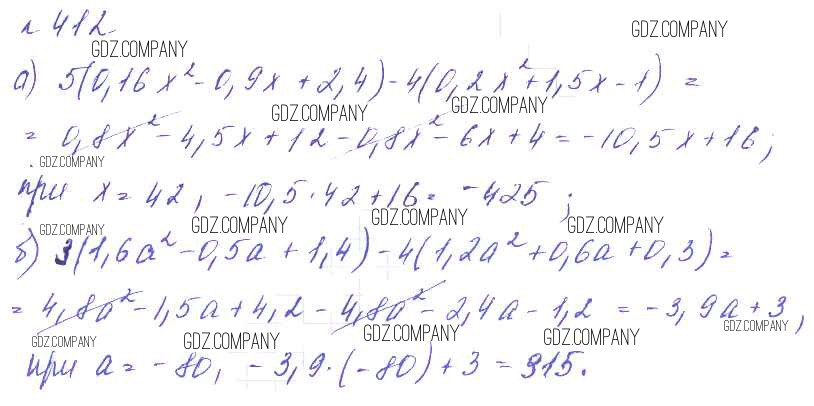 № 412
GDZ.COMPANY GDZ.COMPANY
а) 5(0,16x² - 0,9x + 2,4) - 4(0,2x² + 1,5x - 1) =
GDZ.COMPANY GDZ.COMPANY
= 0,8x² - 4,5x + 12 - 0,8x² - 6x + 4 = -10,5x + 16;
GDZ.COMPANY
при x = 42, -10,5·42 + 16 = -425;
GDZ.COMPANY GDZ.COMPANY GDZ.COMPANY GDZ.COMPANY
б) 3(1,6a² - 0,5a + 1,4) - 4(1,2a² + 0,6a + 0,3) =
= 4,8a² - 1,5a + 4,2 - 4,8a² - 2,4a - 1,2 = -3,9a + 3,
GDZ.COMPANY GDZ.COMPANY GDZ.COMPANY GDZ.COMPANY GDZ.COMPANY
при a = -80, -3,9·(-80) + 3 = 315.